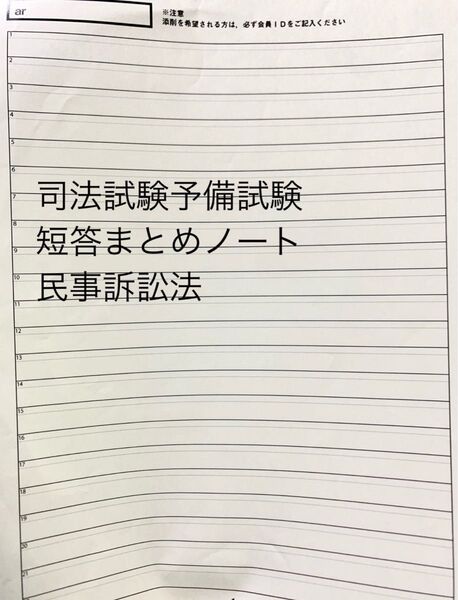 ar
※注意
添削を希望される方は、必ず会員IDをご記入ください
1
2
3
4
5
6
7
8
9
10
11
12
13
14
15
16
17
18
19
20
21
司法試験予備試験
短答まとめノート
民事訴訟法